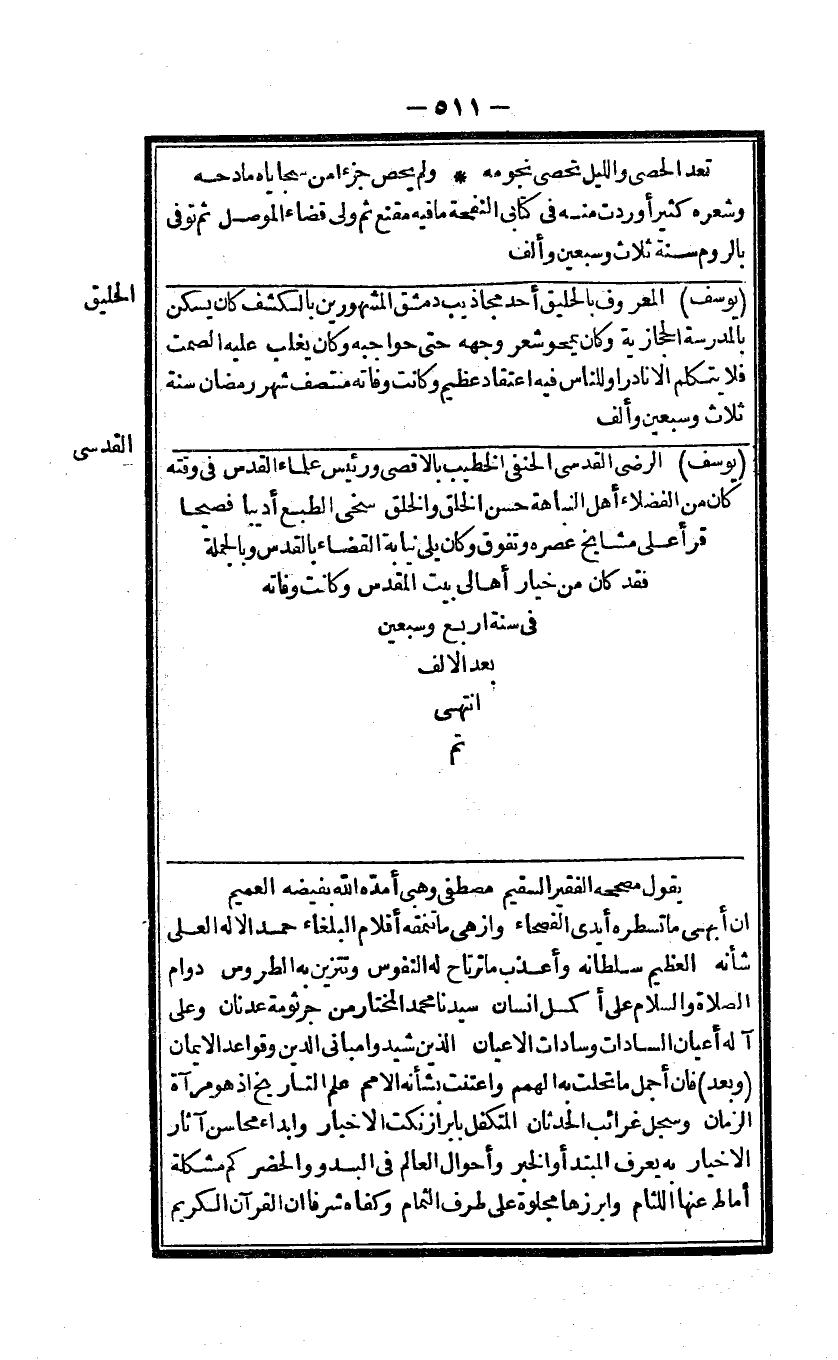 — ٥١١ —
تعد الحصى والليل تحصى نجومه * ولم يحص جزءا من سجاياه مادحه
وشعره كثير أوردت منه فى كتابى النفحة ما فيه مقنع ثم ولى قضاء الموصل ثم توفى
بالروم سنة ثلاث وسبعين وألف
الخليق
(يوسف) المعروف بالخليق أحد مجاذيب دمشق المشهورين بالكشف كان يسكن
بالمدرسة الحجازية وكان يمحو شعر وجهه حتى حواجبه وكان يغلب عليه الصمت
فلا يتكلم الا نادرا وللناس فيه اعتقاد عظيم وكانت وفاته منتصف شهر رمضان سنة
ثلاث وسبعين وألف
القدسى
(يوسف) الرضى القدسى الحنفى الخطيب بالاقصى ورئيس علماء القدس فى وقته
كان من الفضلاء أهل النباهة حسن الخلق والخلق سخى الطبع أديبا فصيحا
قرأ على مشايخ عصره وتفوق وكان يلى نيابة القضاء بالقدس وبالجملة
فقد كان من خيار أهالى بيت المقدس وكانت وفاته
فى سنة اربع وسبعين
بعد الالف
انتهى
تم
يقول مصححه الفقير السقيم مصطفى وهبى أمده الله بفيضه العميم
ان أبهى ما تسطره أيدى الفصحاء وازهى ما تنمقه أقلام البلغاء حمد الاله العلى
شأنه العظيم سلطانه وأعذب ما ترتاح له النفوس وتتزين به الطروس دوام
الصلاة والسلام على أكمل انسان سيدنا محمد المختار من جرثومة عدنان وعلى
آله أعيان السادات وسادات الاعيان الذين شيدوا مبانى الدين وقواعد الايمان
(وبعد) فان أجمل ما تحلت به الهمم واعتنت بشأنه الامم علم التاريخ اذ هو مرآة
الزمان وسجل غرائب الحدثان المتكفل بابراز نكت الاخبار وابداء محاسن آثار
الاخيار به يعرف المبتدأ والخبر وأحوال العالم فى البدو والحضر كم مشكلة
أماط عنها اللثام وابرزها مجلوة على طرف الثمام وكفاه شرفا ان القرآن الكريم